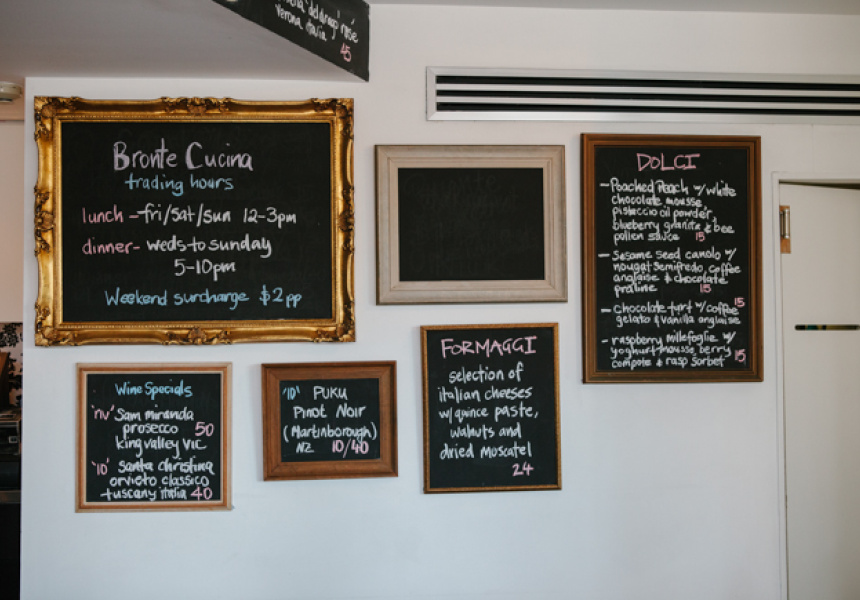 rosé
verona italia
45
Bronte Cucina
trading hours
lunch - fri/sat/sun 12-3pm
dinner - weds to sunday
5-10pm
Weekend surcharge $2pp
DOLCI
- Poached Peach w/ white
chocolate mousse
pistaccio oil powder,
blueberry granita & bee
pollen sauce 15
- Sesame seed canolo w/
nougat semifredo, coffee
anglaise & chocolate
praline 15
- Chocolate tart w/ coffee 15
gelato & vanilla anglaise
- raspberry millefoglie w/
yoghurt mousse, berry 15
compote & rasp sorbet
FORMAGGI
selection of
italian cheeses
w/ quince paste,
walnuts and
dried moscatel
24
Wine Specials
'nv' Sam miranda
prosecco 50
king valley VIC
'10' Santa christina
orvieto classico
tuscany italia 40
'10' PUKU
Pinot Noir
(Martinborough)
NZ 10/40